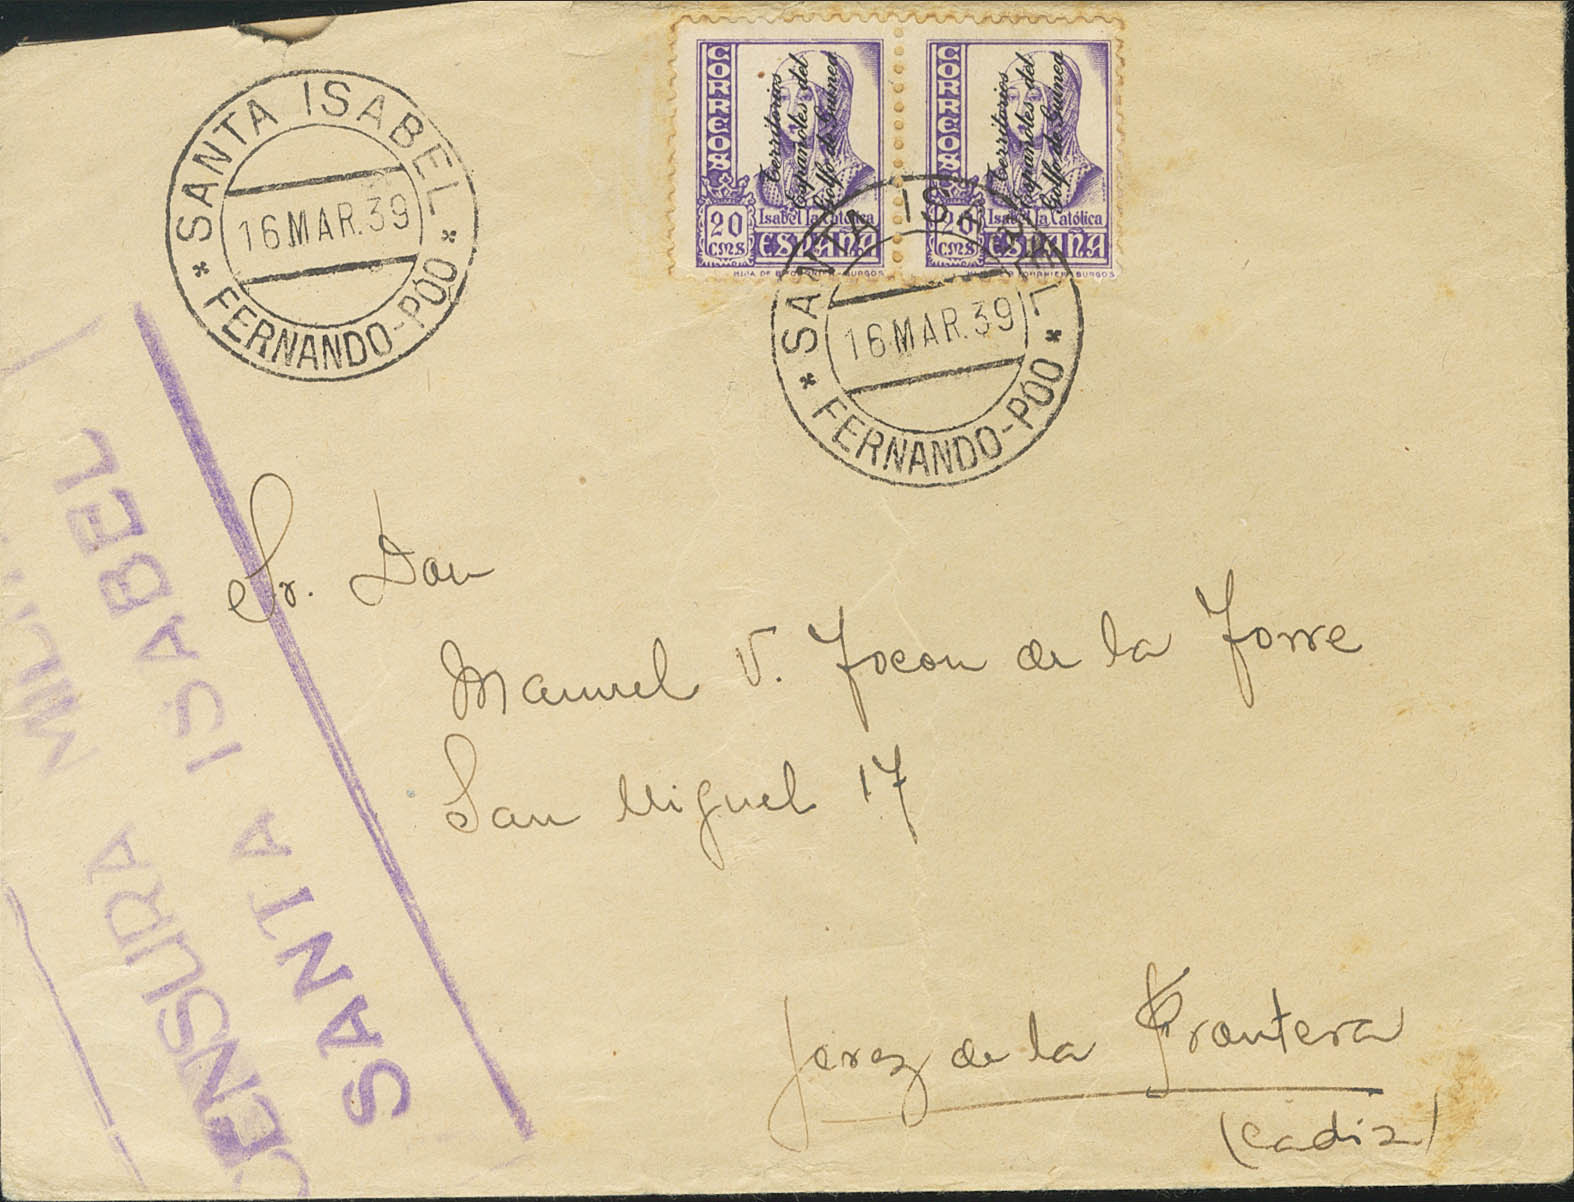 SANTA ISABEL
16 MAR. 39
FERNANDO-PÓO
CORREOS
Territorios
Españoles del
Golfo de Guinea
20
CMS
Isabel la Católica
ESPAÑA
HIJA DE B. FOURNIER-BURGOS
CORREOS
Territorios
Españoles del
Golfo de Guinea
20
CMS
Isabel la Católica
ESPAÑA
SANTA ISABEL
16 MAR. 39
FERNANDO-PÓO
CENSURA
SANTA ISABEL
Sr. Don
Manuel V. Tocon de la Torre
San Miguel 17
Jerez de la Frontera
(Cadiz)